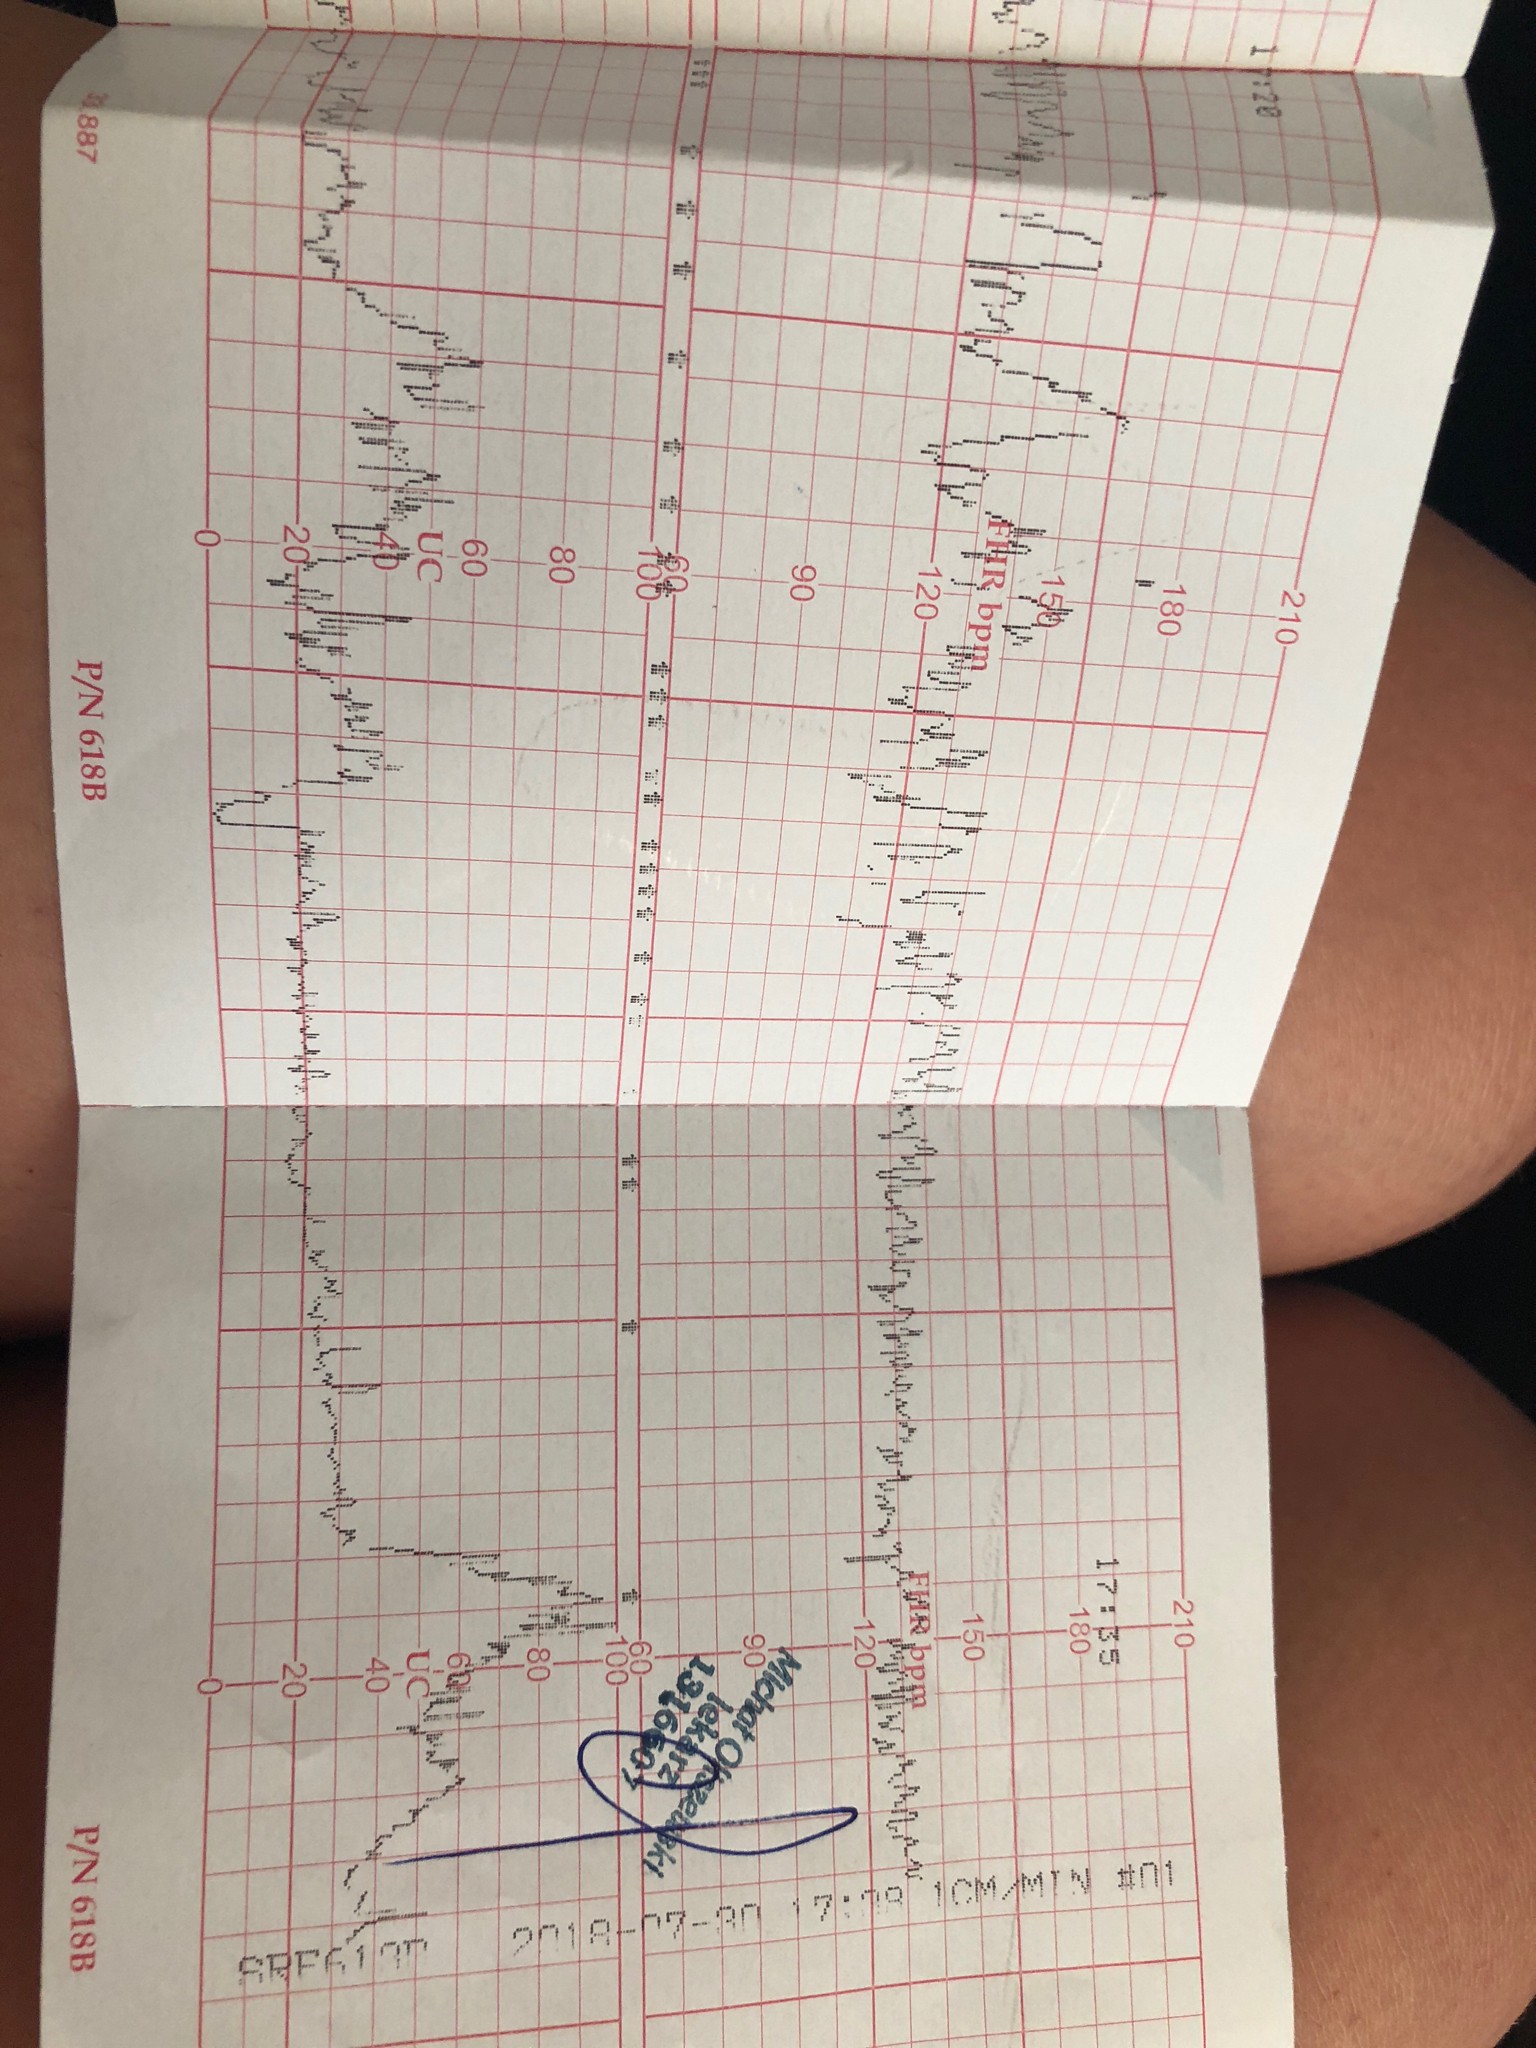 17:20
210
180
150
FHR bpm
120
90
60
100
80
60
UC
40
20
0
P/N 618B
17:35
210
180
150
FHR bpm
120
90
60
100
80
60
UC
40
20
0
lekarz
1CM/MIN #01
P/N 618B